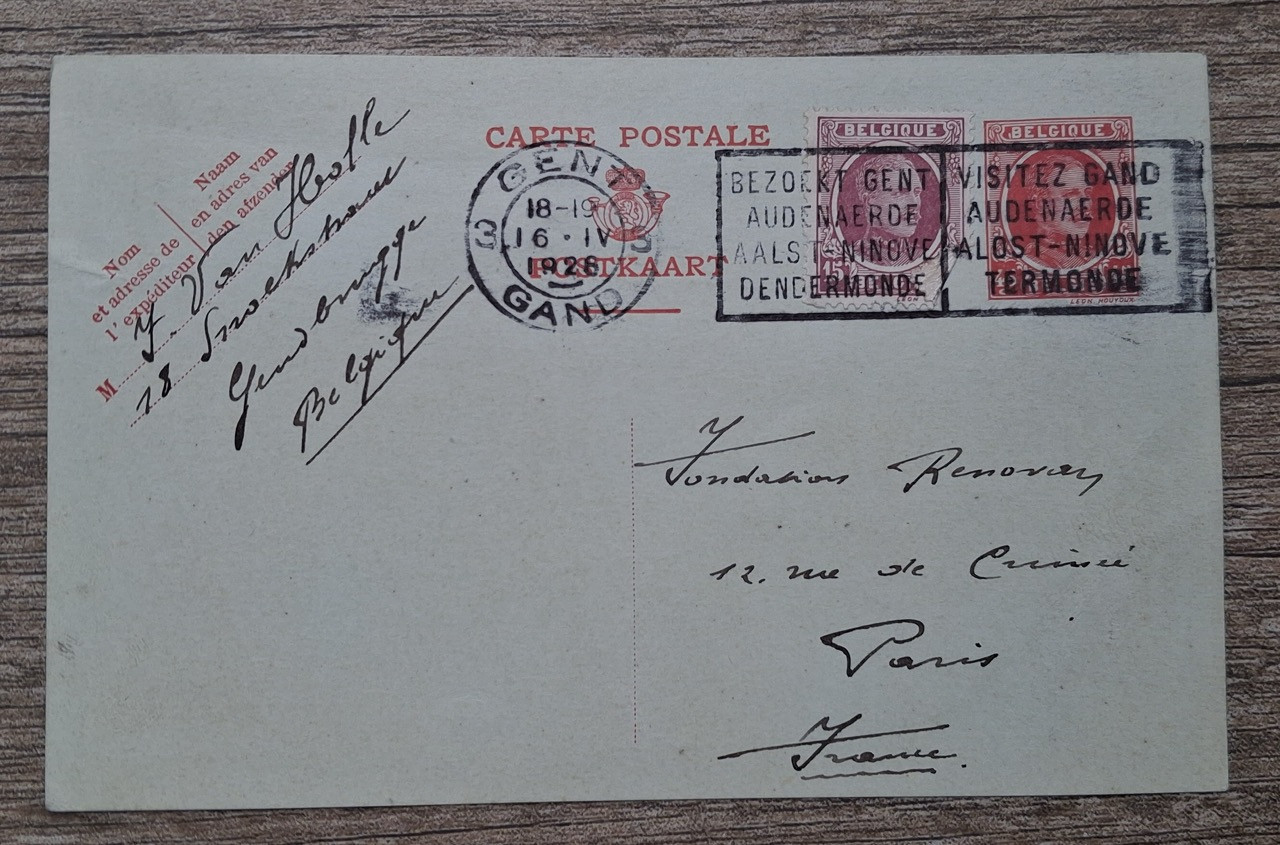 CARTE POSTALE
POSTKAART
Nom
et adresse de
l'expéditeur
Naam
en adres van
den afzender
M
Van Holle
18 Snoekstraat
Gendbrugge
Belgique
GENT
18-19
16·IV
1928
GAND
BELGIQUE
BELGIQUE
LEON HOUYOUX
BEZOEKT GENT
AUDENAERDE
AALST-NINOVE
DENDERMONDE
VISITEZ GAND
AUDENAERDE
ALOST-NINOVE
TERMONDE
Fondation Renovan
12. rue de Crimée
Paris
France.